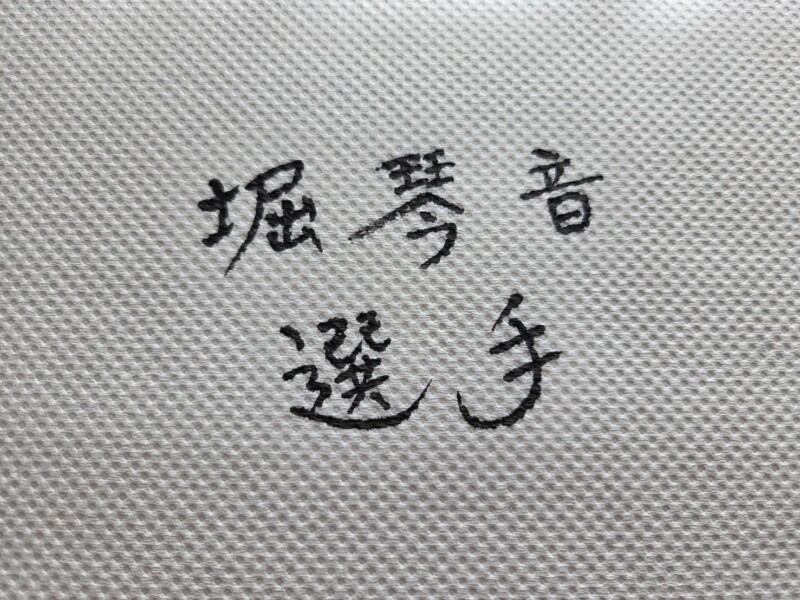 堀琴音
選手